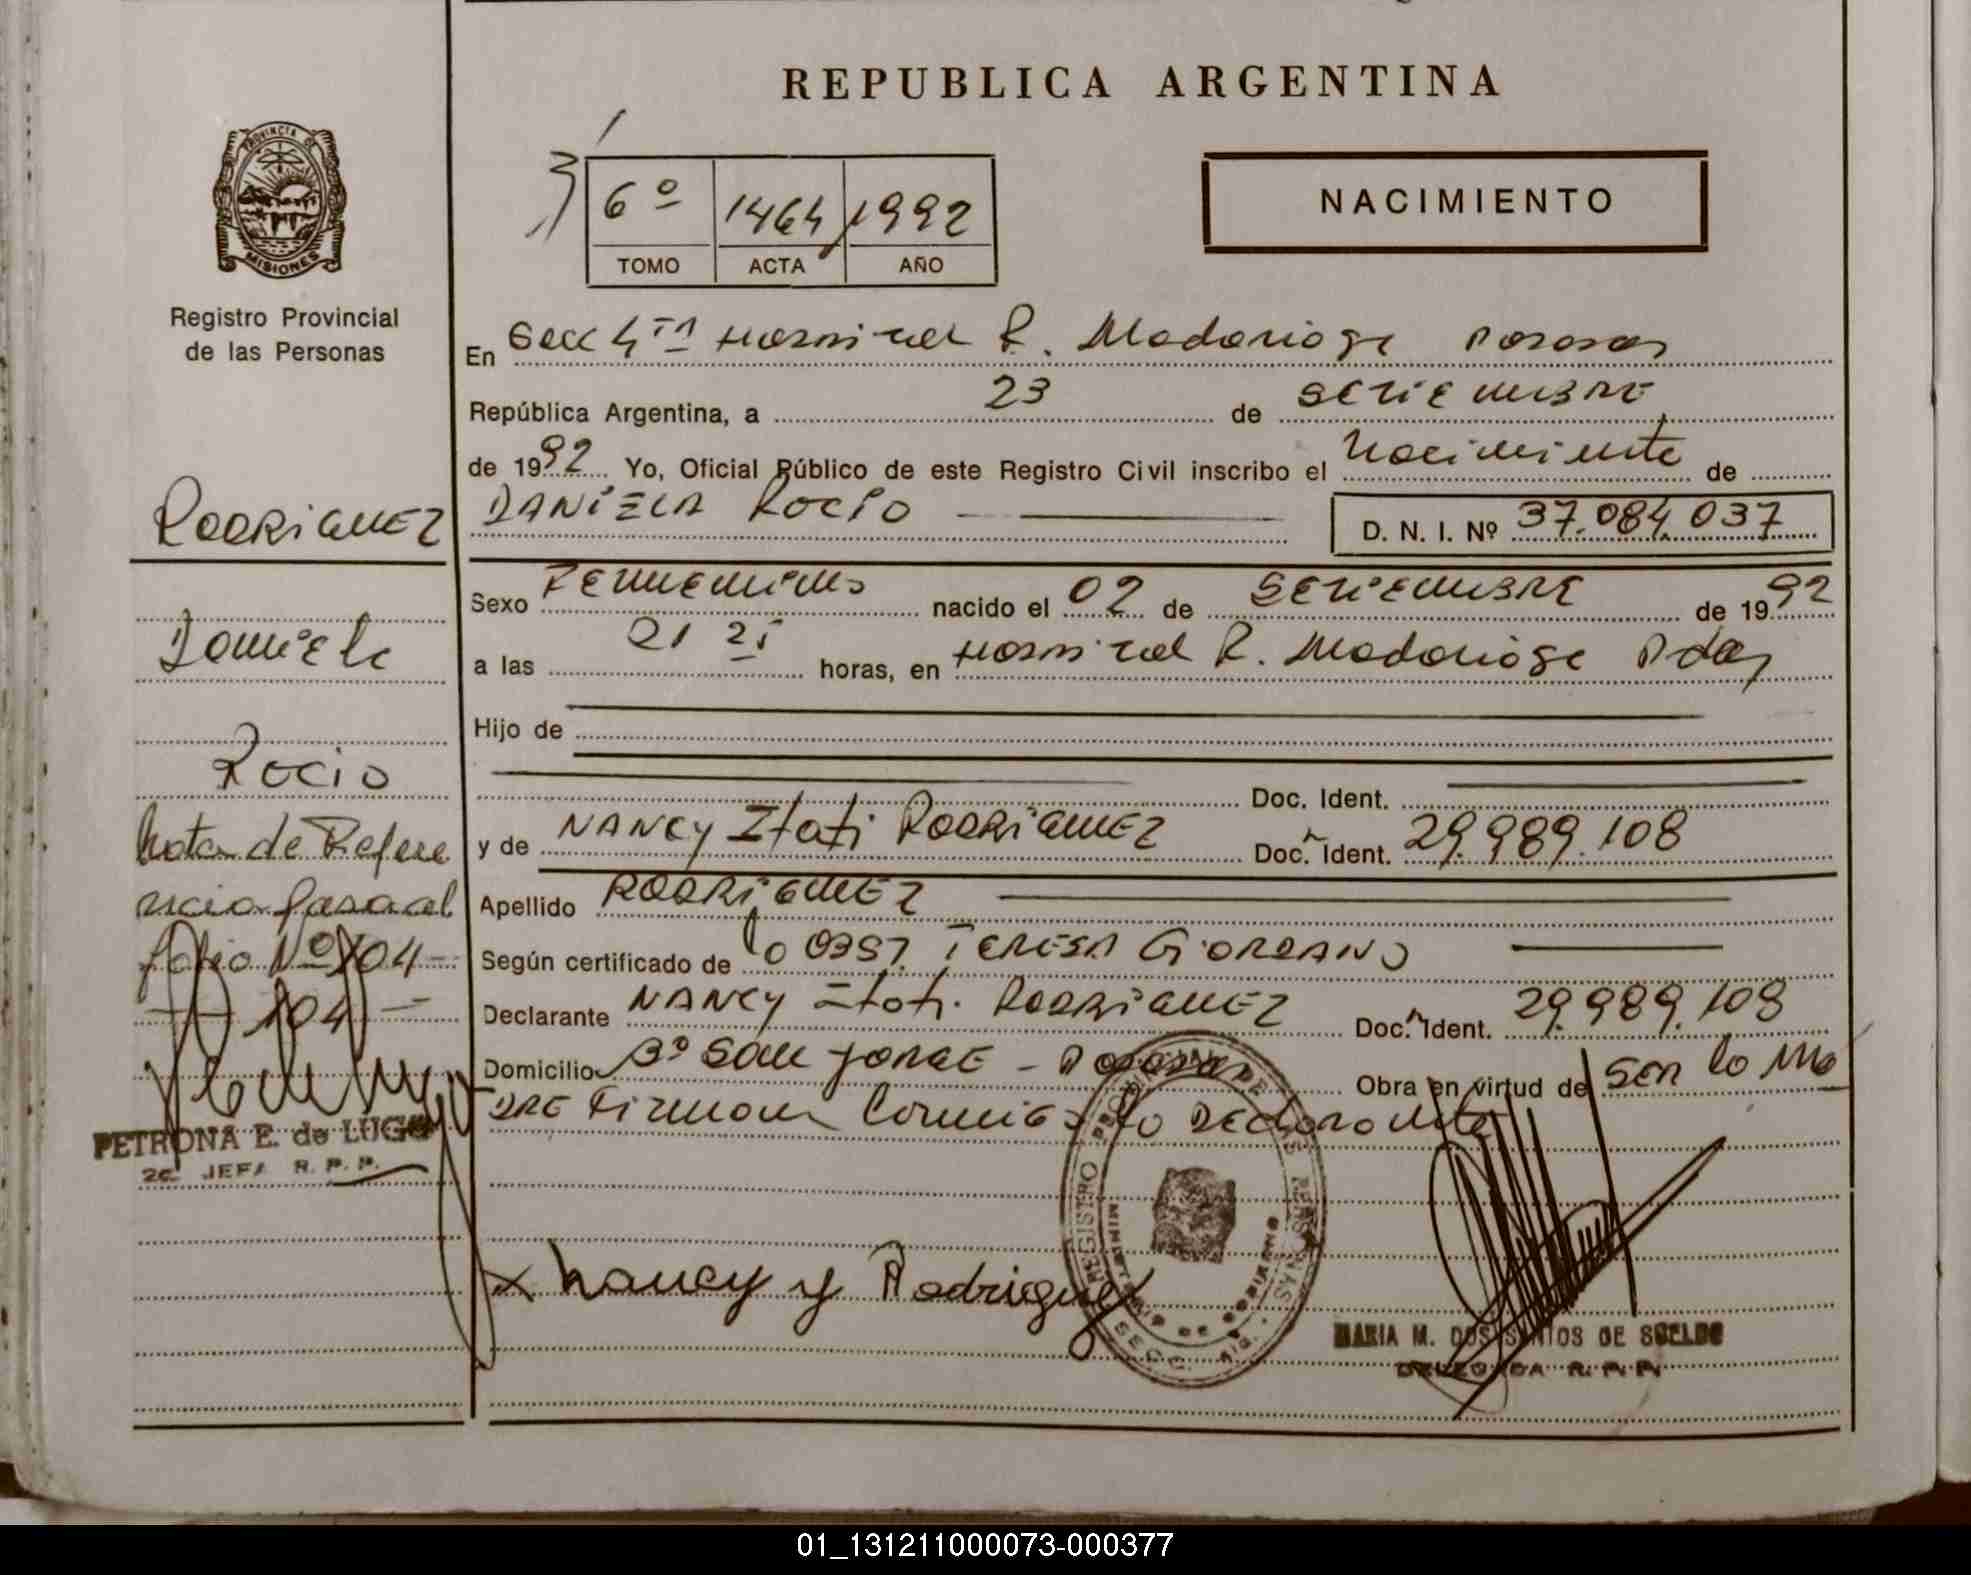 REPUBLICA ARGENTINA
PROVINCIA DE MISIONES
Registro Provincial
de las Personas
6º 1464 1992
TOMO ACTA AÑO
NACIMIENTO
En Secc 4ta Hospital R. Madariaga Posadas
República Argentina, a 23 de SETIEMBRE
de 1992 Yo, Oficial Público de este Registro Civil inscribo el Nacimiento de
DANIELA ROCIO
D. N. I. Nº 37.084.037
RODRIGUEZ
Daniela
Rocio
Sexo Femenino nacido el 02 de SETIEMBRE de 1992
a las 21 25 horas, en Hospital R. Madariaga Pdas
Hijo de
Doc. Ident.
y de NANCY Itati RODRIGUEZ Doc. Ident. 29.989.108
Apellido RODRIGUEZ
Según certificado de TERESA GIORDANO
Declarante NANCY Itati RODRIGUEZ Doc. Ident. 29.989.108
Domicilio Bº San JORGE - Posadas Obra en virtud de Ser la Ma
DRE Firman Conmigo la Declarante
Nota de Refere
ncia
folio Nº 104-
- 104 -
PETRONA E. de LUGO
2º JEFA R. P. P.
x Nancy y Rodriguez
REGISTRO PROVINCIAL DE LAS PERSONAS
MINISTERIO DE GOBIERNO
MARIA M. DOS SANTOS DE SUELDO
DELEGADA R. P. P.
01_131211000073-000377